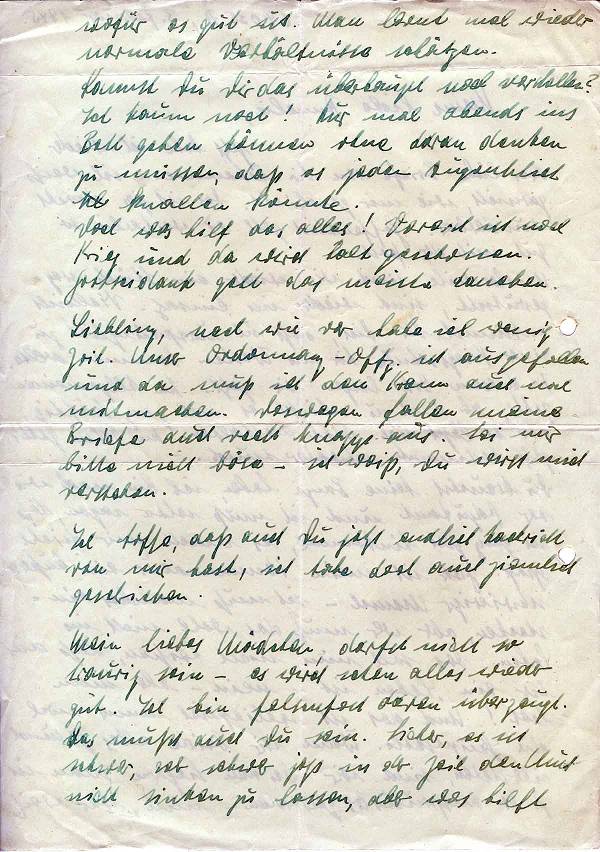 wofür es gut ist. Man lernt mal wieder
normale Verhältnisse schätzen.
Kannst Du Dir das überhaupt noch vorstellen?
Ich kaum noch! Nur mal abends ins
Bett gehen können ohne daran denken
zu müssen, daß es jeden Augenblick
knallen könnte.
Doch was hilf das alles! Vorerst ist noch
Krieg und da wird halt geschossen.
Gottseidank geht das meiste daneben.
Liebling, nach wie vor habe ich wenig
Zeit. Unser Ordonnanz-Offz. ist ausgefallen
und da muß ich den Kram auch noch
mitmachen. Deswegen fallen meine
Briefe auch recht knapp aus. Sei mir
bitte nicht böse – ich weiß, Du wirst mich
verstehen.
Ich hoffe, daß auch Du jetzt endlich Nachricht
von mir hast, ich habe doch auch ziemlich
geschrieben.
Mein liebes Mädchen, darfst nicht so
traurig sein – es wird schon alles wieder
gut. Ich bin felsenfest davon überzeugt.
Das mußt auch Du sein. Sicher, es ist
schwer, sehr schwer jetzt in der Zeit den Mut
nicht sinken zu lassen, aber was hilft